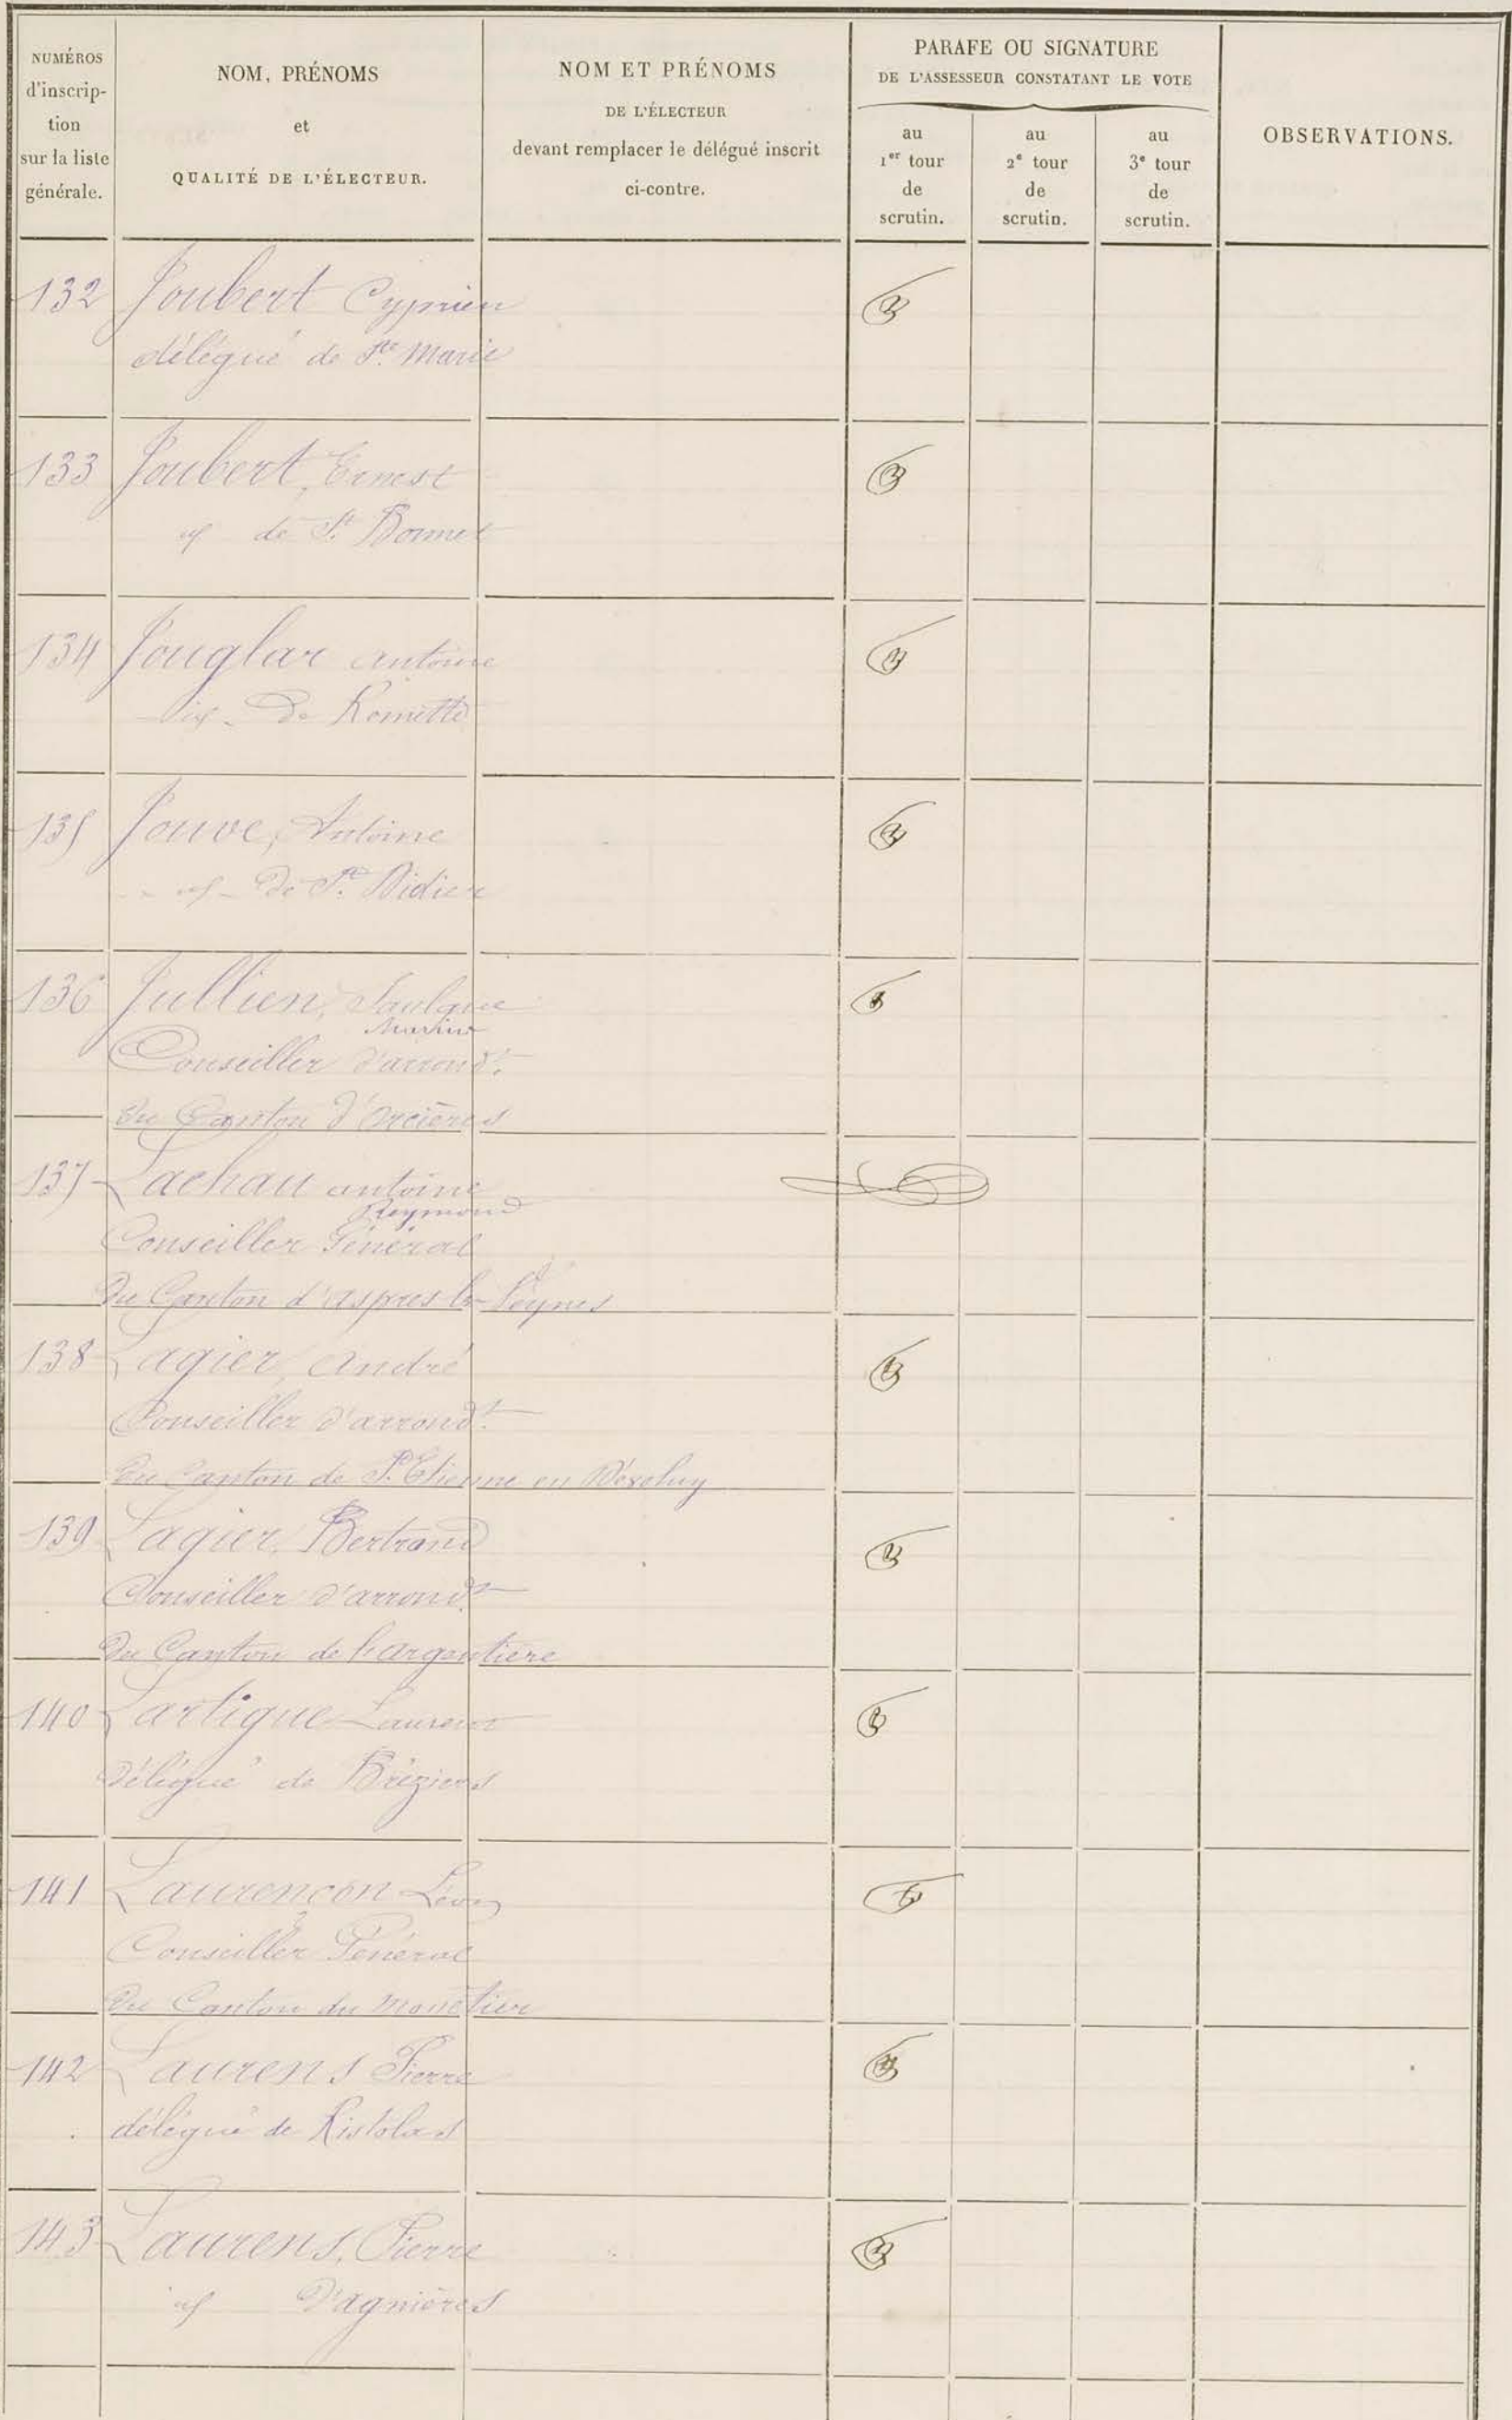 NUMÉROS
d'inscrip-
tion
sur la liste
générale.
NOM, PRÉNOMS
et
QUALITÉ DE L'ÉLECTEUR.
NOM ET PRÉNOMS
DE L'ÉLECTEUR
devant remplacer le délégué inscrit
ci-contre.
PARAFE OU SIGNATURE
DE L'ASSESSEUR CONSTATANT LE VOTE
au
1er tour
de
scrutin.
au
2e tour
de
scrutin.
au
3e tour
de
scrutin.
OBSERVATIONS.
132 Joubert Cyprien
délégué de Ste Marie
133 Joubert, Ernest
de St Bonnet
134 Jouglar antoine
De Romette
135 Jouve, Antoine
De St Didier
136 Jullien,
Conseiller d'arrondt
Du Canton d'Orcières
137 Lachau antoine
Reymond
Conseiller Général
Du Canton d'aspres les Veynes
138 Lagier, André
Conseiller d'arrondt
Du Canton de St Etienne en Dévoluy
139 Lagier, Bertrand
Conseiller d'arrondt
Du Canton de Largentière
140 Lartigue Laurent
Délégué de Bréziers
141 Laurençon Léon
Conseiller Général
Du Canton du Monêtier
142 Laurens Pierre
délégué de Ristolas
143 Laurens, Pierre
D'agnières